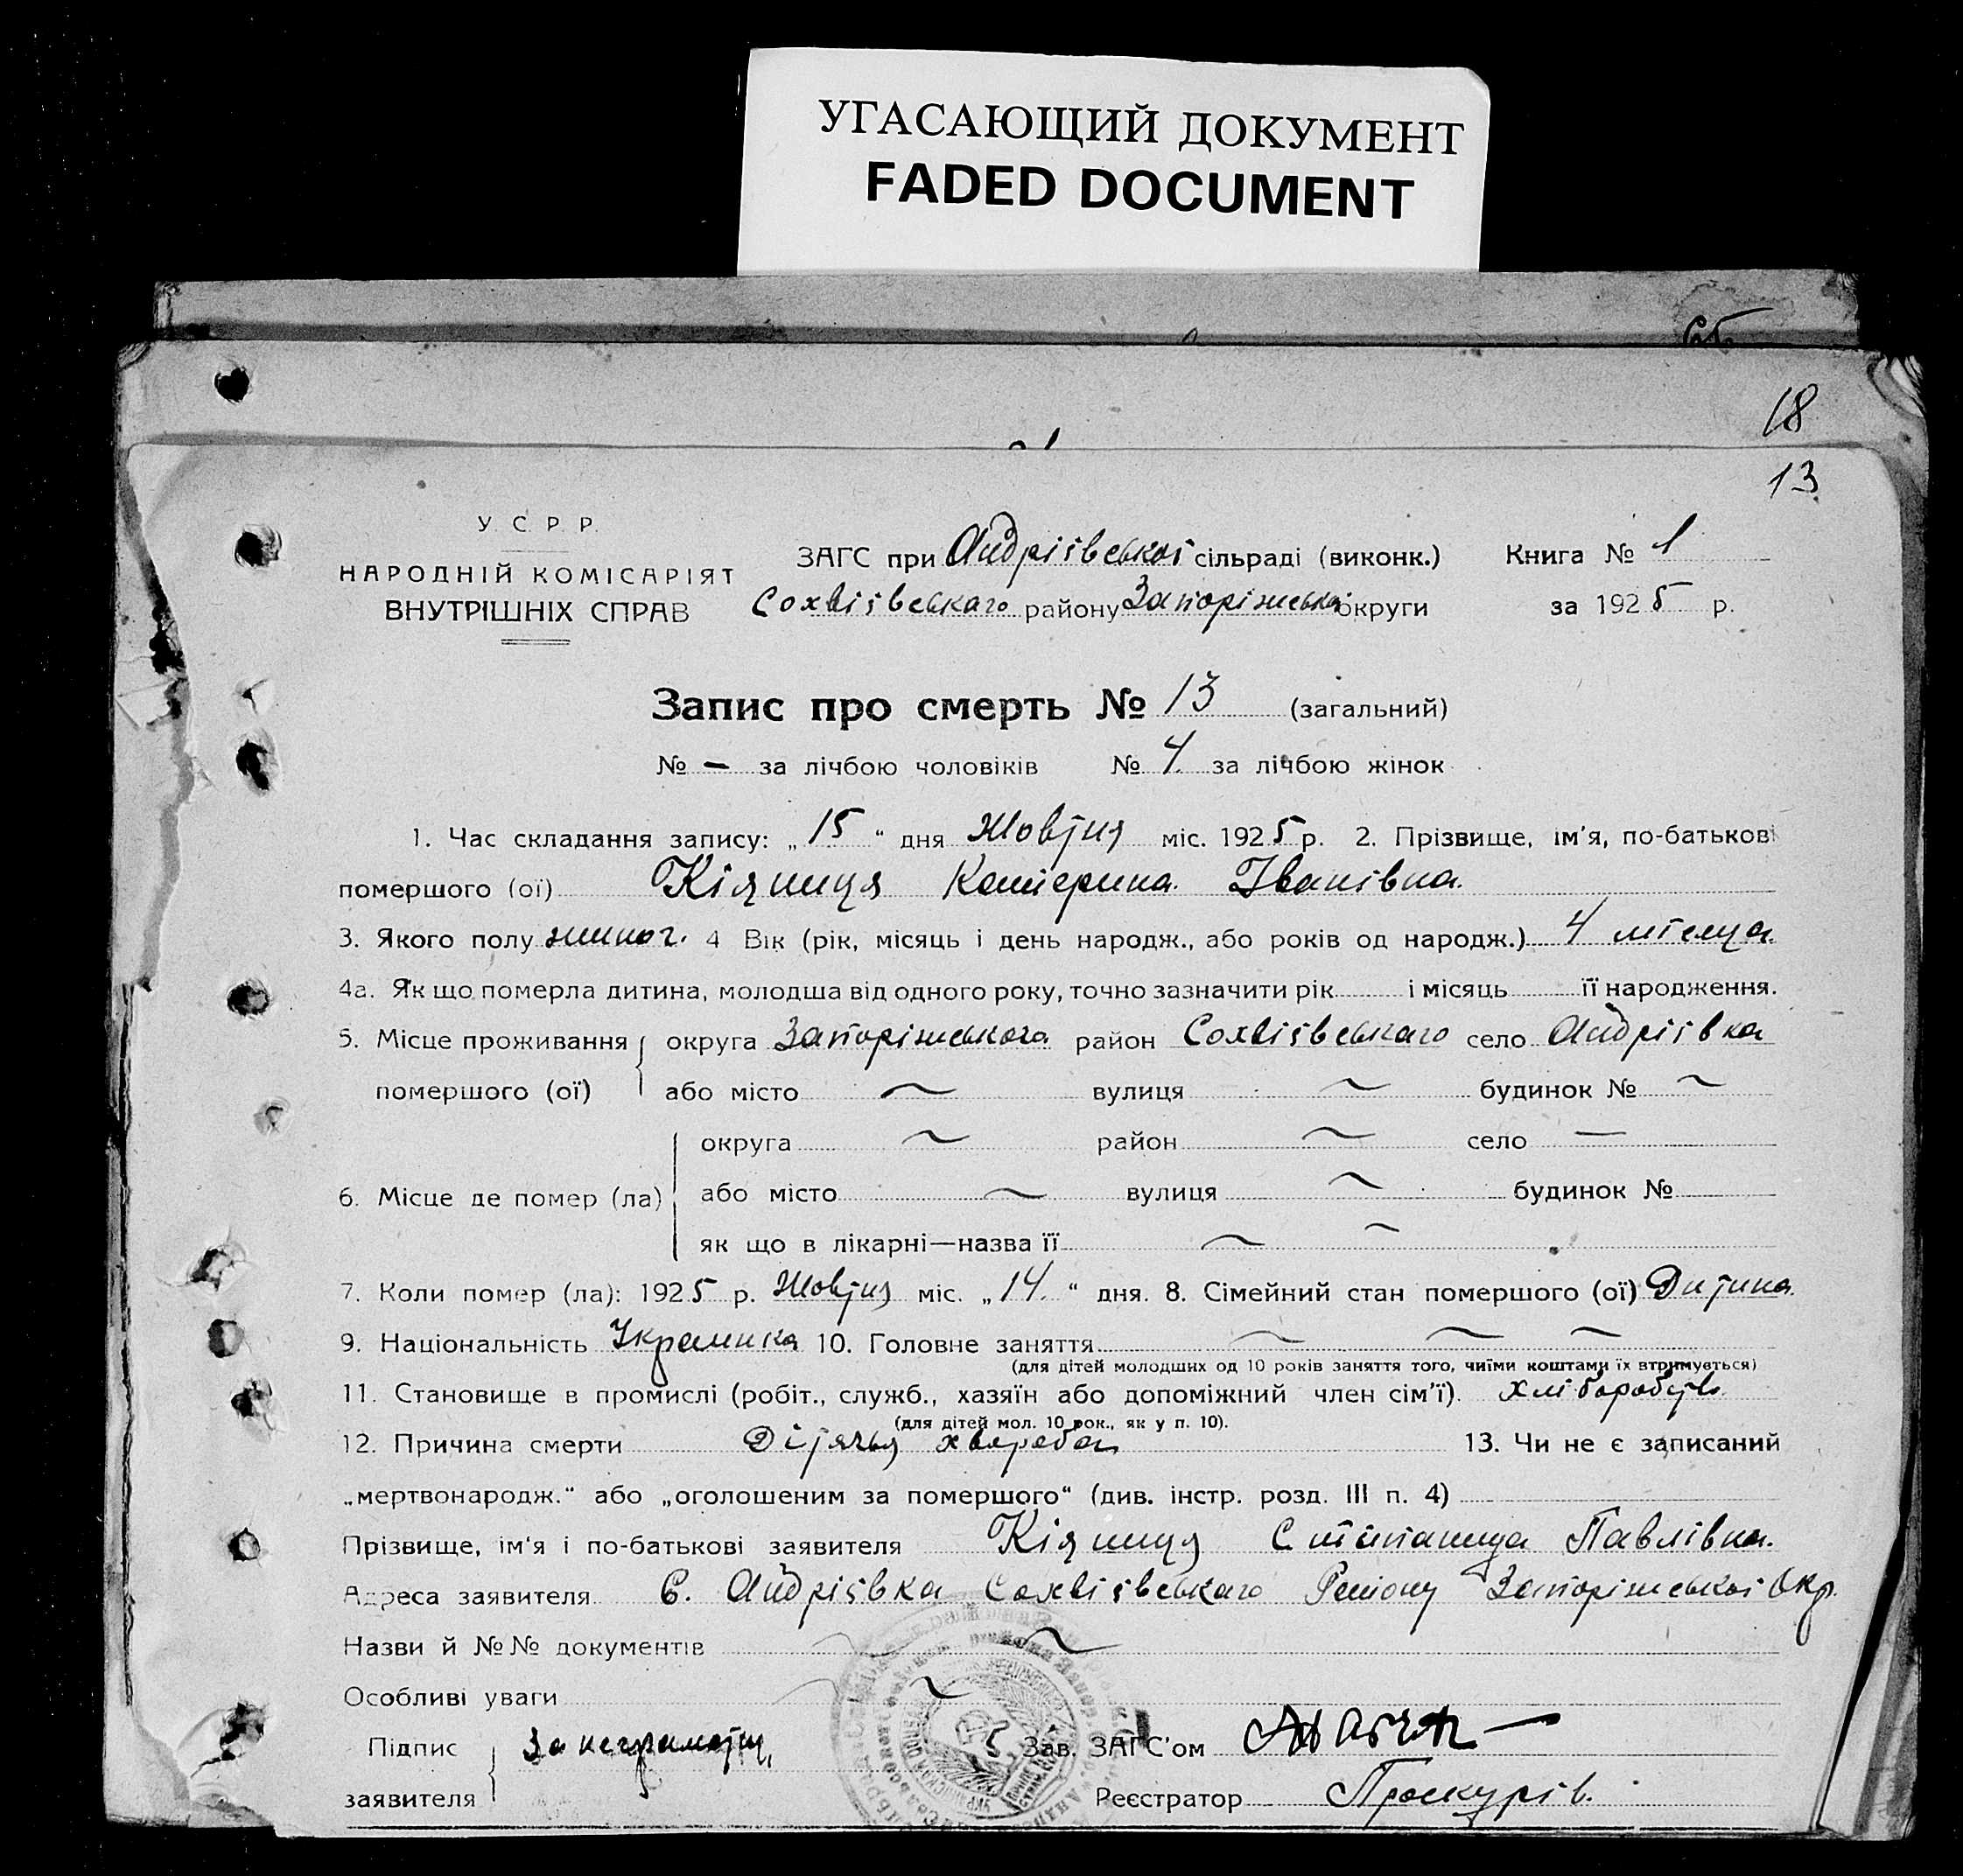 УГАСАЮЩИЙ ДОКУМЕНТ
FADED DOCUMENT
18
13
У. С. Р. Р.
НАРОДНІЙ КОМІСАРІЯТ
ВНУТРІШНІХ СПРАВ
ЗАГС при Андріївської сільраді (виконк.) Книга № 1
Сохвіївського району Запоріжської округи за 1925 р.
Запис про смерть № 13 (загальний)
№ — за лічбою чоловіків № 4. за лічбою жінок
1. Час складання запису: „15“ дня Жовтня міс. 1925 р. 2. Прізвище, ім'я, по-батькові
помершого (ої) Кіяниця Катерина Іванівна.
3. Якого полу жиноч. 4 Вік (рік, місяць і день народж., або років од народж.) 4 місяца.
4а. Як що померла дитина, молодша від одного року, точно зазначити рік і місяць її народження.
5. Місце проживання округа Запоріжського район Сохвіївського село Андріївка
помершого (ої) або місто ~ вулиця ~ будинок № ~
округа ~ район ~ село —
6. Місце де помер (ла) або місто ~ вулиця ~ будинок №
як що в лікарні—назва її ~ ~
7. Коли помер (ла): 1925 р. Жовтня міс. „14.“ дня. 8. Сімейний стан помершого (ої) Дитина.
9. Національність Украинка 10. Головне заняття ~ ~ ~
(для дітей молодших од 10 років заняття того, чиїми коштами їх втримується)
11. Становище в промислі (робіт., служб., хазяїн або допоміжний член сім'ї). хліборобств.
(для дітей мол. 10 рок., як у п. 10).
12. Причина смерти Дітячья хвороба 13. Чи не є записаний
„мертвонародж.“ або „оголошеним за помершого“ (див. інстр. розд. III п. 4)
Прізвище, ім'я і по-батькові заявителя Кіяниця Степанида Павлівна.
Адреса заявителя С. Андріївка Сохвіївського Району Запоріжської Окр.
Назви й №№ документів ~ ~
Особливі уваги ~ ~
Підпис За неграмотн. Зав. ЗАГС'ом
заявителя Реєстратор Проскурів.